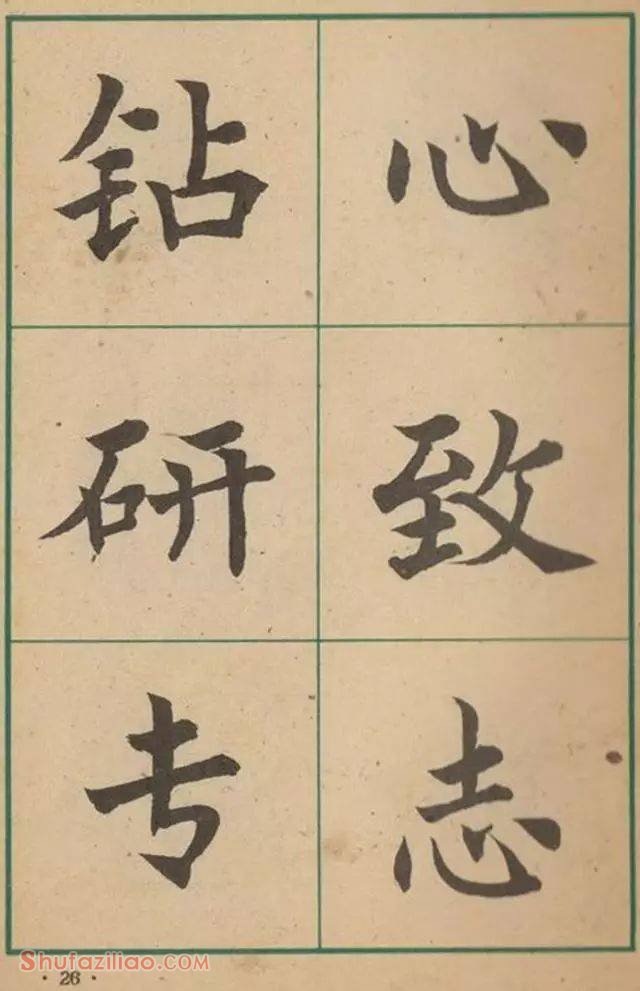 心致志
钻研专
Shufaziliao.com
· 26 ·